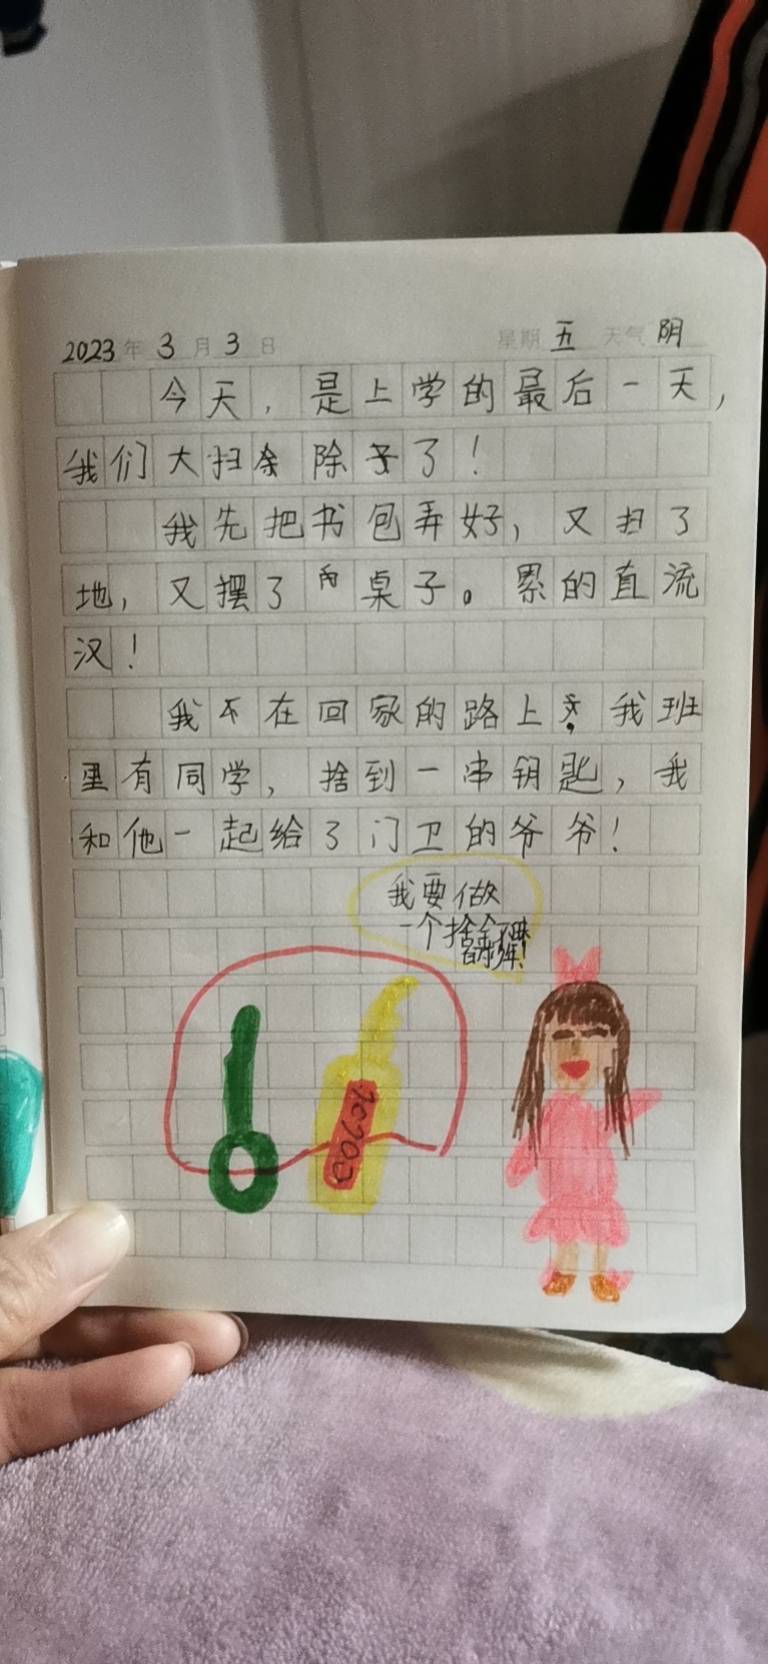 2023年 3月 3日 星期 五 天气 阴
今天，是上学的最后一天，
我们大扫除了！
我先把书包弄好，又扫了
地，又摆了桌子。累的直流
汉！
我在回家的路上，我班
里有同学，捨到一串钥匙，我
和他一起给了门卫的爷爷！
我要做
一个捨金不昧